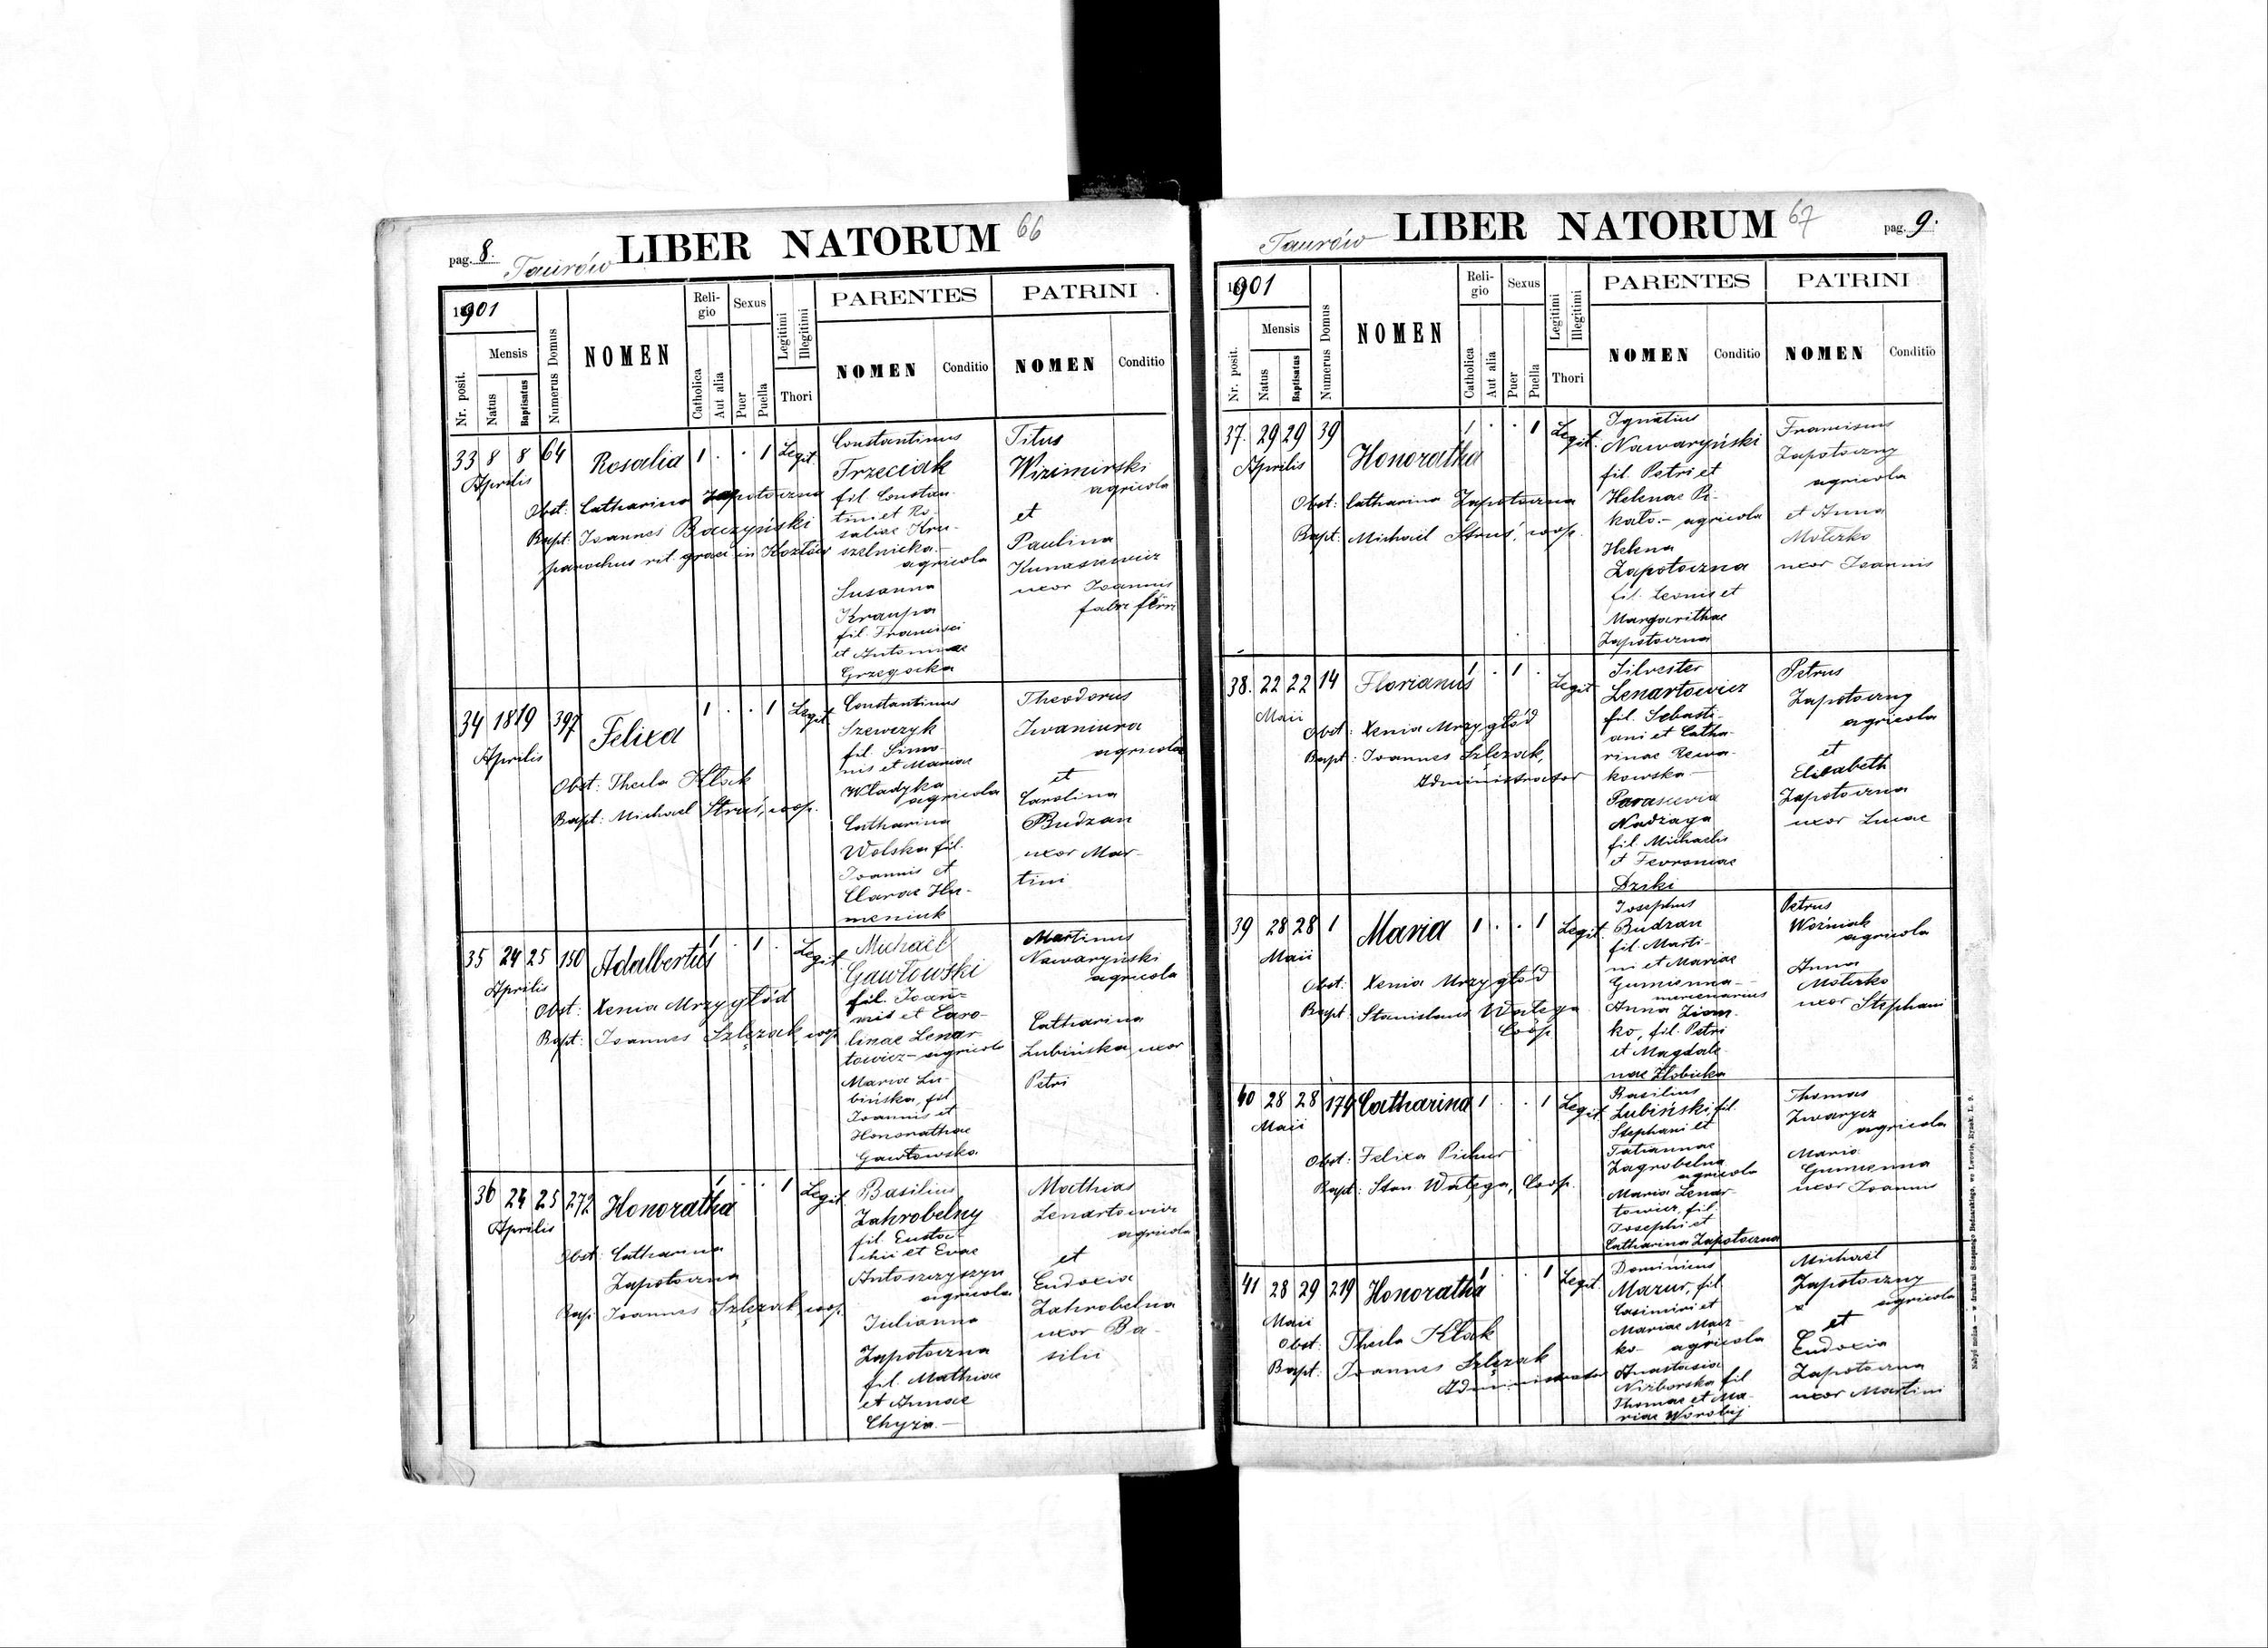 pag. 8.
Taurów
LIBER NATORUM
66
1901
Nr. posit.
Mensis
Natus
Baptisatus
Numerus Domus
NOMEN
Religio
Catholica
Aut alia
Sexus
Puer
Puella
Legitimi
Illegitimi
Thori
PARENTES
NOMEN
Conditio
PATRINI
NOMEN
Conditio
33 8 8 64 Rosalia 1 . . 1 Legit.
Aprilis
Obst: Catharina Zapotoczna
Bapt: Joannes Baczyński
parochus rit. graeci in Kozłów
Constantinus
Trzeciak
fil. Constan-
tini et Ro-
saliae Kru-
szelnicka -
agricola
Susanna
Kraupa
fil. Francisci
et Antoninae
Grzegocka
Titus
Wizimirski
agricola
et
Paulina
Kunaszkiewicz
uxor Joannis
fabri ferri
34 18 19 397 Felixa 1 . . 1 Legit.
Aprilis
Obst: Thecla Kłak
Bapt: Michael Struś, coop.
Constantinus
Szewczyk
fil. Simo-
nis et Mariae
Władyka
agricola
Catharina
Wolska fil.
Joannis et
Clarae Hu-
meniuk
Theodorus
Iwaniura
agricola
et
Carolina
Budzan
uxor Mar-
tini
35 24 25 150 Adalbertus 1 . 1 . Legit.
Aprilis
Obst: Xenia Mrzygłód
Bapt: Joannes Szlęzak, coop.
Michaël
Gawłowski
fil. Joan-
nis et Caro-
linae Lenar-
towicz - agricola
Maria Lu-
bińska, fil
Joannis et
Honorathae
Gawłowska
Martinus
Nawaryński
agricola
Catharina
Lubińska uxor
Petri
36 24 25 272 Honoratha 1 . . 1 Legit.
Aprilis
Obst: Catharina
Zapotoczna
Bapt: Joannes Szlęzak, coop.
Basilius
Zahrobelny
fil. Eusta-
chii et Evae
Antoszczyszyn
agricola
Julianna
Zapotoczna
fil. Mathiae
et Annae
Chyża -
Mathias
Lenartowicz
agricola
et
Eudoxia
Zahrobelna
uxor Ba-
silii
Taurów
LIBER NATORUM
67
pag. 9.
1901
Nr. posit.
Mensis
Natus
Baptisatus
Numerus Domus
NOMEN
Religio
Catholica
Aut alia
Sexus
Puer
Puella
Legitimi
Illegitimi
Thori
PARENTES
NOMEN
Conditio
PATRINI
NOMEN
Conditio
37. 29 29 39 Honoratha 1 . . 1 Legit.
Aprilis
Obst: Catharina Zapotoczna
Bapt: Michaël Struś, coop.
Ignatius
Nawaryński
fil. Petri et
Helenae Pi-
kało - agricola
Helena
Zapotoczna
fil. Leonis et
Margarithae
Zapotoczna
Franciscus
Zapotoczny
agricola
et Anna
Moterko
uxor Joannis
38. 22 22 14 Florianus 1 . 1 . Legit
Maii
Obst: Xenia Mrzygłód
Bapt: Joannes Szlęzak,
Administrator
Silvester
Lenartowicz
fil. Sebasti-
ani et Catha-
rinae Rewa-
kowska -
Parascevia
Nadżaga
fil. Michaelis
et Fevroniae
Dziki
Petrus
Zapotoczny
agricola
et
Elisabeth
Zapotoczna
uxor Lucae
39 28 28 1 Maria 1 . . 1 Legit.
Maii
Obst: Xenia Mrzygłód
Bapt: Stanislaus Wałęga
Coop.
Josephus
Budzan
fil. Marti-
ni et Mariae
Gumienna -
mercenarius
Anna Ziom-
ko, fil. Petri
et Magdale-
nae Złobicka
Petrus
Woźniak
agricola
Anna
Moterko
uxor Stephani
40 28 28 174 Catharina 1 . . 1 Legit.
Maii
Obst: Felixa Pichur
Bapt: Stan Wałęga, Coop.
Basilius
Lubiński, fil.
Stephani et
Tatiannae
Zagrobelna
agricola
Maria Lenar-
towicz, fil.
Josephi et
Catharina Zapotoczna
Thomas
Zwarycz
agricola
Maria
Gumienna
uxor Joannis
41 28 29 219 Honoratha 1 . . 1 Legit.
Maii
Obst: Thecla Kłak
Bapt: Joannes Szlęzak
Administrator
Dominicus
Mazur, fil
Casimiri et
Mariae Macz-
ko - agricola
Anastasia
Niżborska fil
Thomae et Ma-
riae Worobij
Michaël
Zapotoczny
agricola
et
Eudoxia
Zapotoczna
uxor Martini